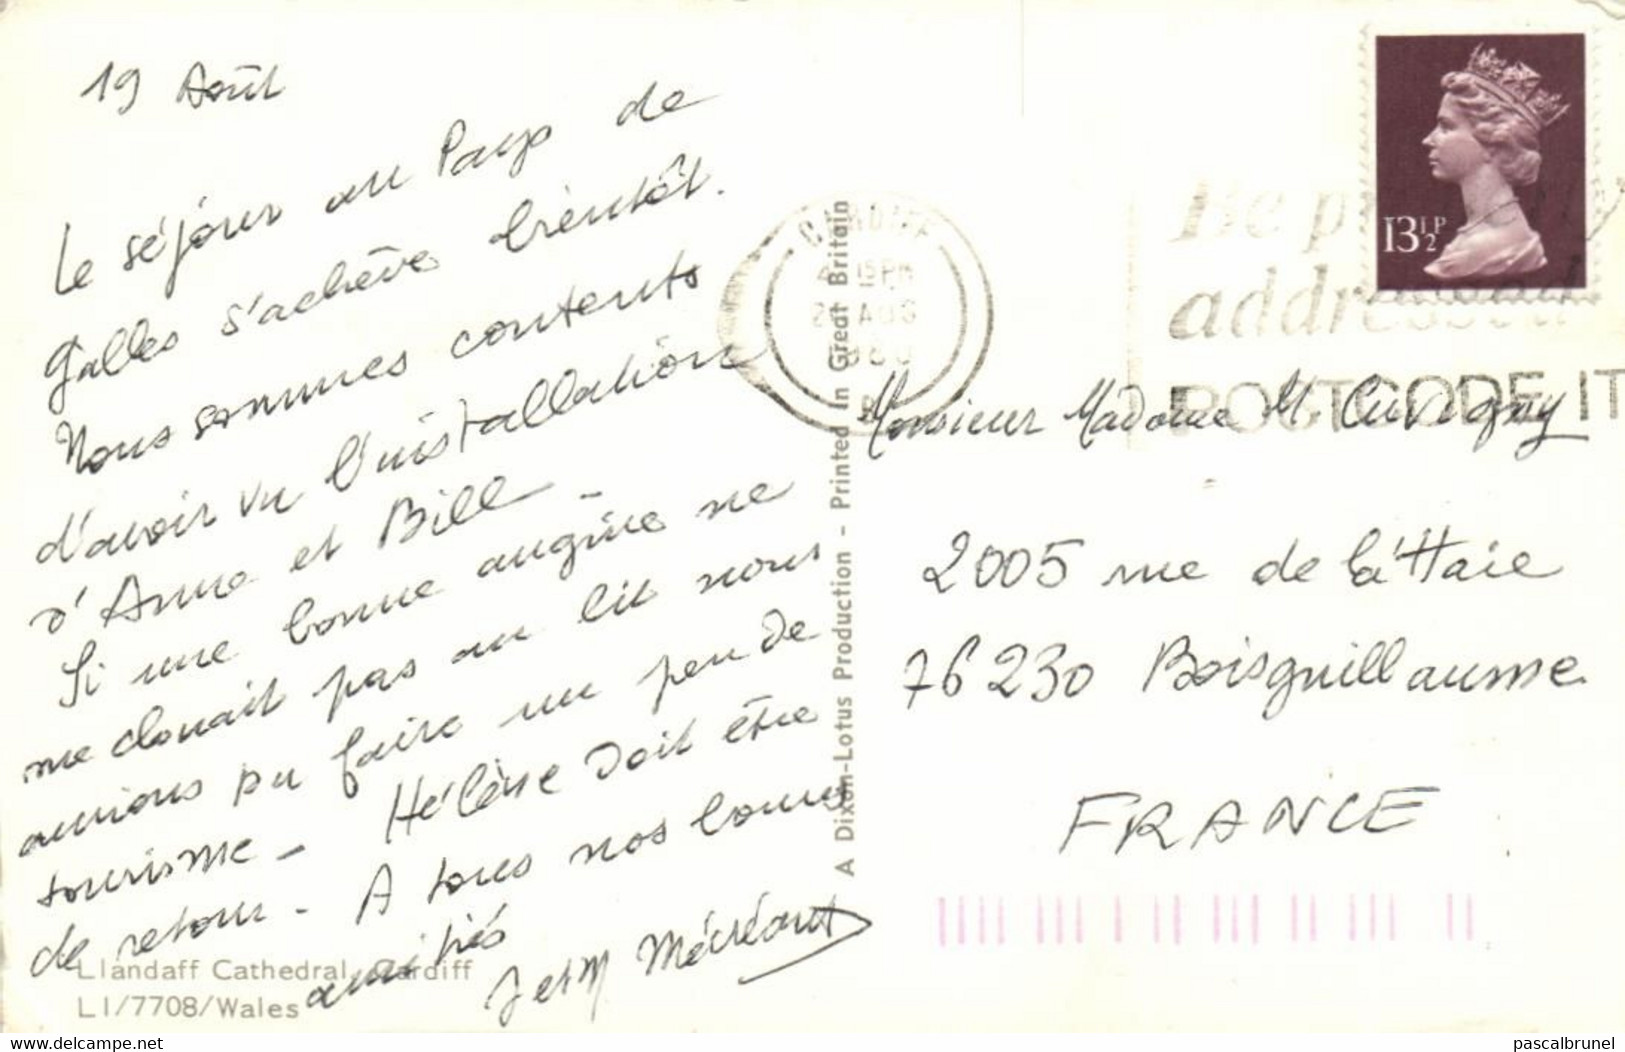 19 Août
Le séjour au Pays de
Galles s'achève bientôt.
Nous sommes contents
d'avoir vu l'installation
d'Anne et Bill -
Si une bonne angine ne
me clouait pas au lit nous
aurions pu faire un peu de
tourisme - Hélène doit être
de retour - A tous nos bonnes
amitiés
J et M Mécréant
Llandaff Cathedral, Cardiff
LI/7708/Wales
A Dixon-Lotus Production - Printed in Great Britain
CARDIFF
15 PM
AUG
13½P
Be properly
addressed
POSTCODE IT
Monsieur Madame M. Cuvigny
2005 rue de la Haie
76230 Boisguillaume
FRANCE
delcampe.net
pascalbrunel